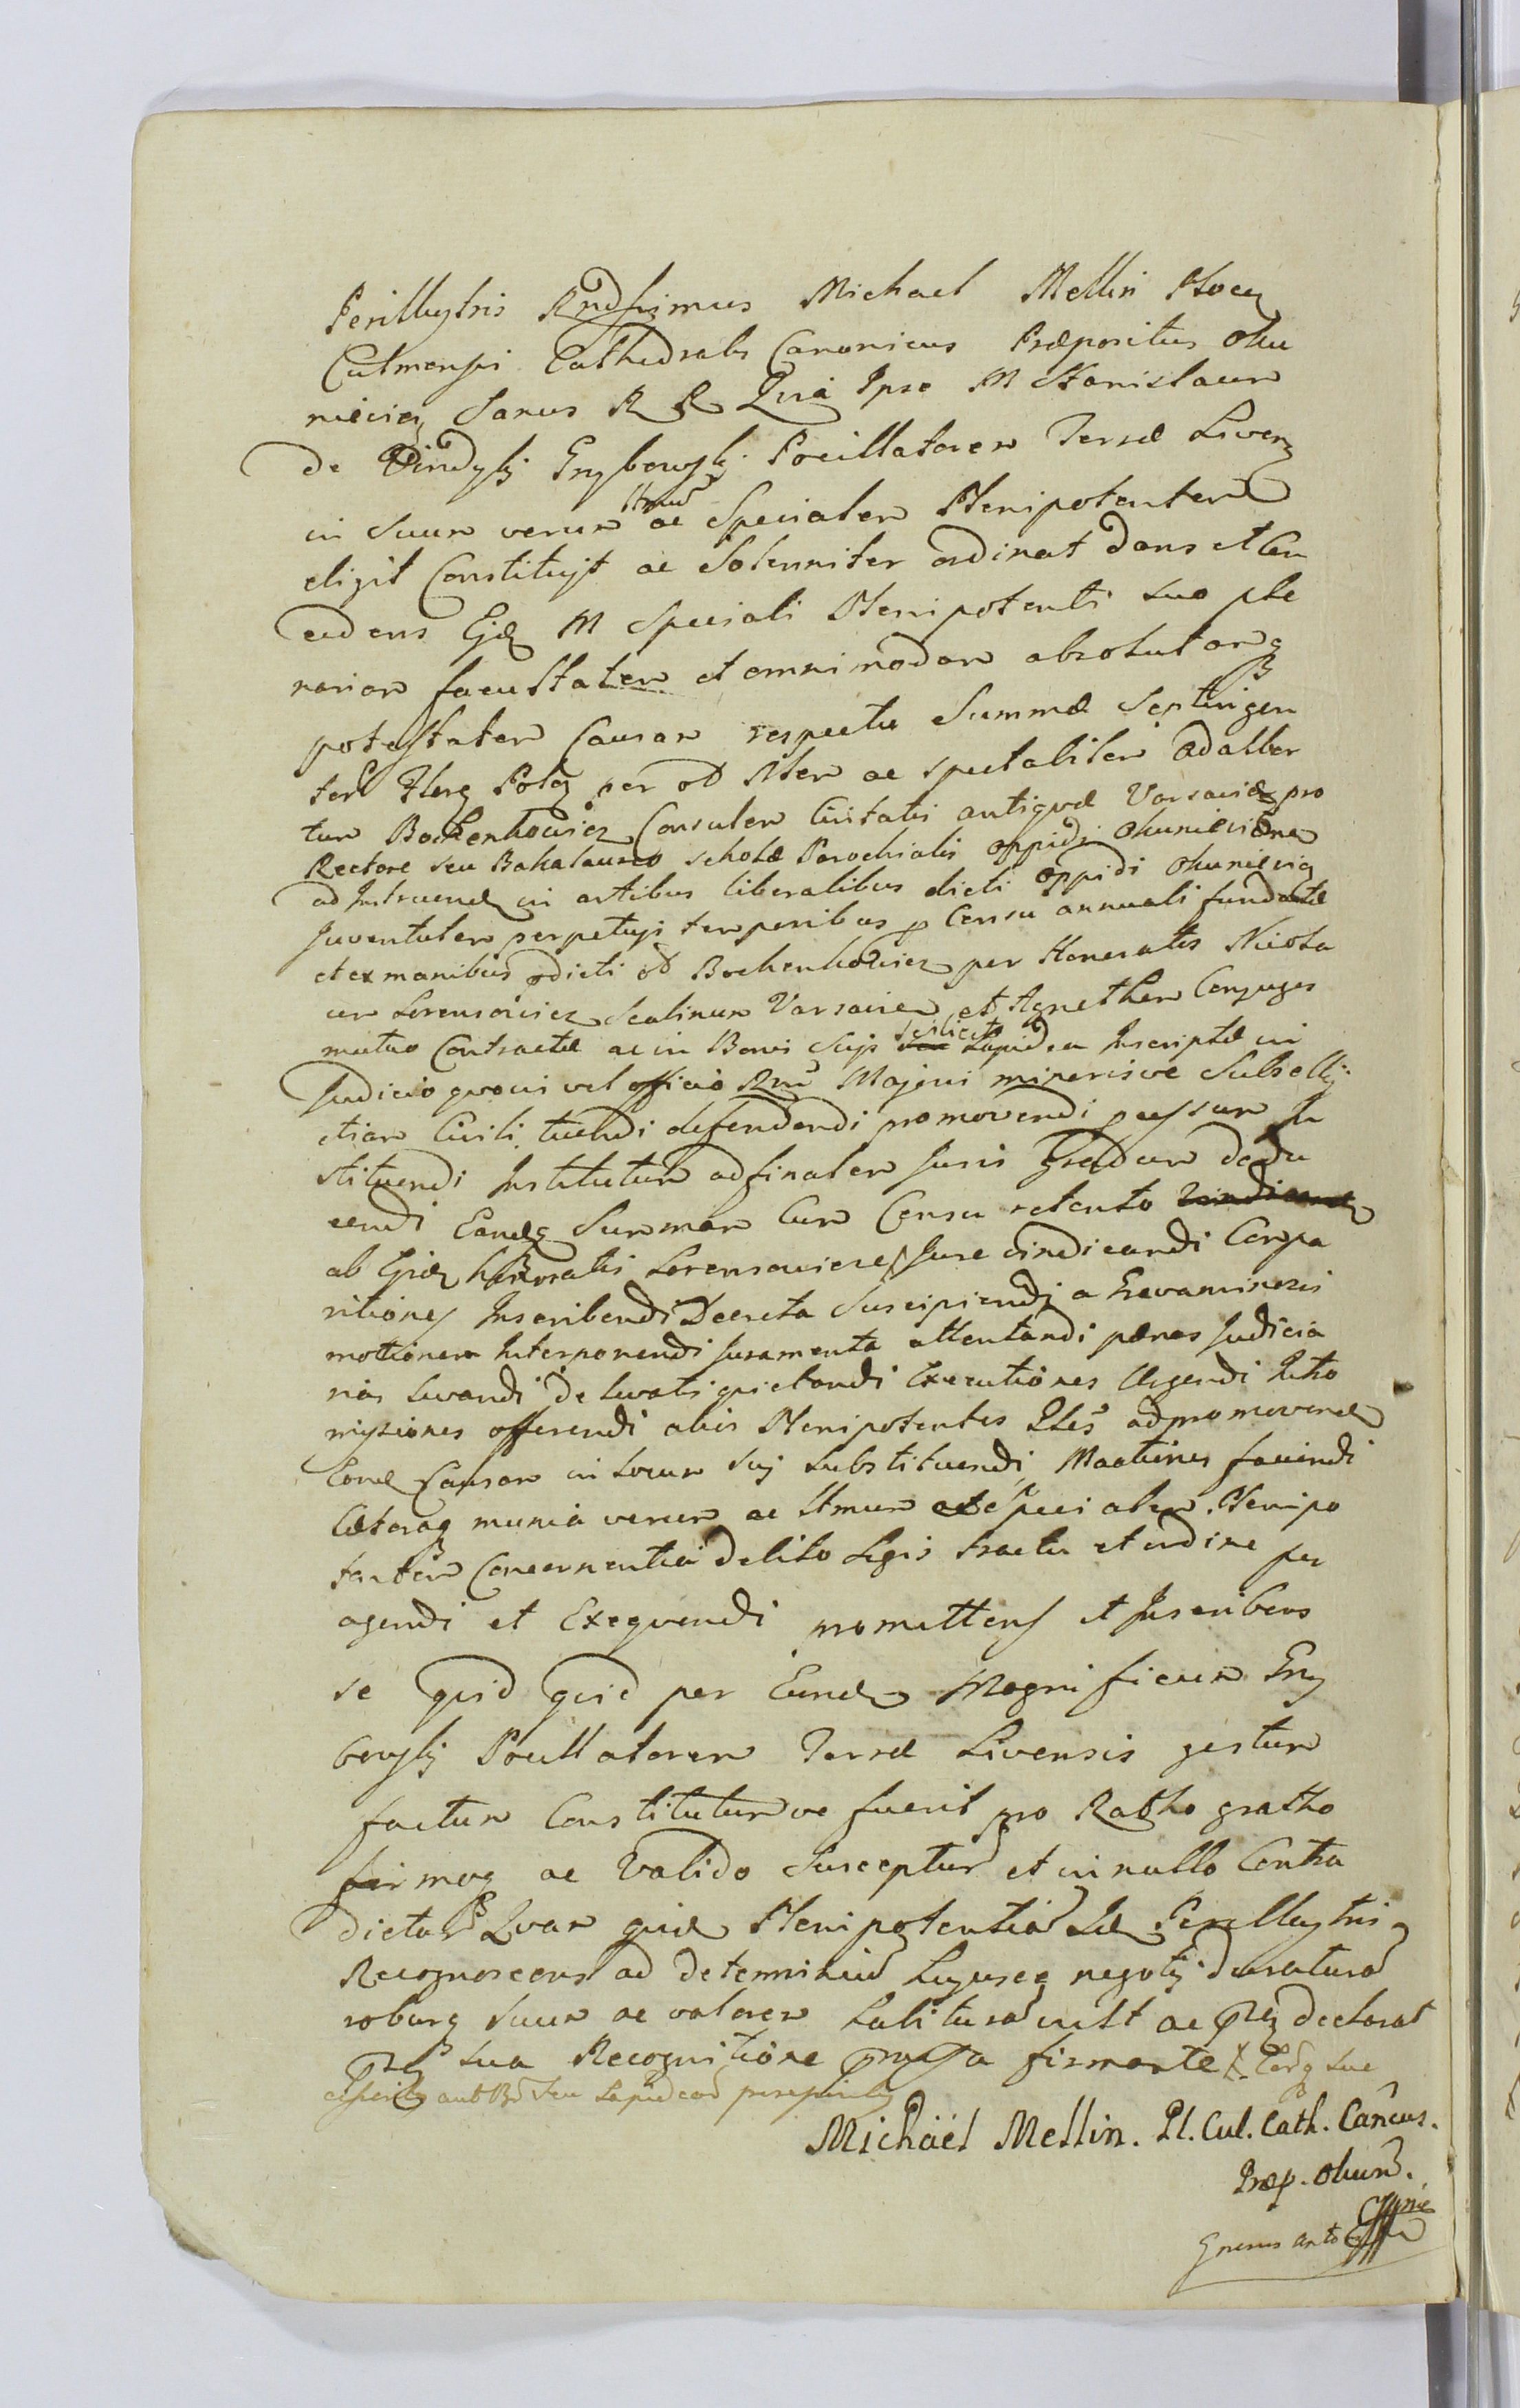 Perillustris Rndssimus Michael Mellin Ploceñ
Culmensis Cathedralis Canonicus Præpositus Oku
nievieñ Sanus R R Quia Ipse M Stanislaum
de Grzybowskj Pocillatorem Terræ Liveñ
in Suum verum Ltmũ ac Specialem Plenipotentem
eligit Constituit ac Solenniter ordinat Dans et Con
cedens Ejdẽ M Speciali Plenipotenti suo ple
nariam facultatem et omnimodam absolutamq
potestatem Causam respectu Summæ Septingen
tor Flenq Polq per od Nlem ac spectabilem Adalber
tum Bochenkowicz Consulem Civitatis antiquæ Varsaviæ pro
Rectore seu Bakalaureo scholæ Parochialis oppidi Okuniewieñ
ad Instruend in artibus liberalibus dicti oppidi Okunievieñ
Juventutem perpetuis temporibus p Censu annuali fundatæ
et ex manibus pdicti od Bochenkowicz per Honoratos Nicola
um Lorensowicz Scabinum Varsavieñ et Agnethem Conjuges
mutuo Contractæ ac in Bonis Suis scilicet Lapidea Inscriptæ in
Judicio quovis vel officio Rni Majori minorisve Subsellij
etiam Civili tuendi defendendi promovendi processum In
stituendi Institutum ad finalem Juris gradum dedu
cendi Eandq Summam Cum Censu retento vindicand
ab Ijsdẽ honoratis Lorensowicze Jure vindicandi Compa
ritiones Inscribendi Decreta Suscipiendi a Gravaminosis
motionem Interponendi Juramenta attentandi pænas Judicia
rias luvandi de luvatis quietandi Executiones Urgendi Intro
missiones offerendi alios Plenipotentes Ptes ad promovend
Eand Causam in Locum Suj substituendi Mootiones faciendi
Cæteraq munia verum ac Ltmum Specialem Plenipo
tentem Concernentia debito Legis tractu et ordine per
agendi et Exequendi promittens et Inscribens
se quid quid per Eund Magnificum Grzy
bowskj Pocillatorem Terræ Livensis gestum
factum Constitutum ve fuerit pro Ratho gratho
firmoq ac valido Suscepturũ et in nullo Contra
dicturũ Quam quid Plenipotentiã Idẽ Perillustris
Recognoscens ad determinium Lujusce negotij duraturã
roburq suum ac valorem habiturã vult ac pñtj declarat
pñtj sua Recognitione præmissa firmante
Michaël Mellin. Pl. Cul. Cath. Cancus.
Præp. Okun.